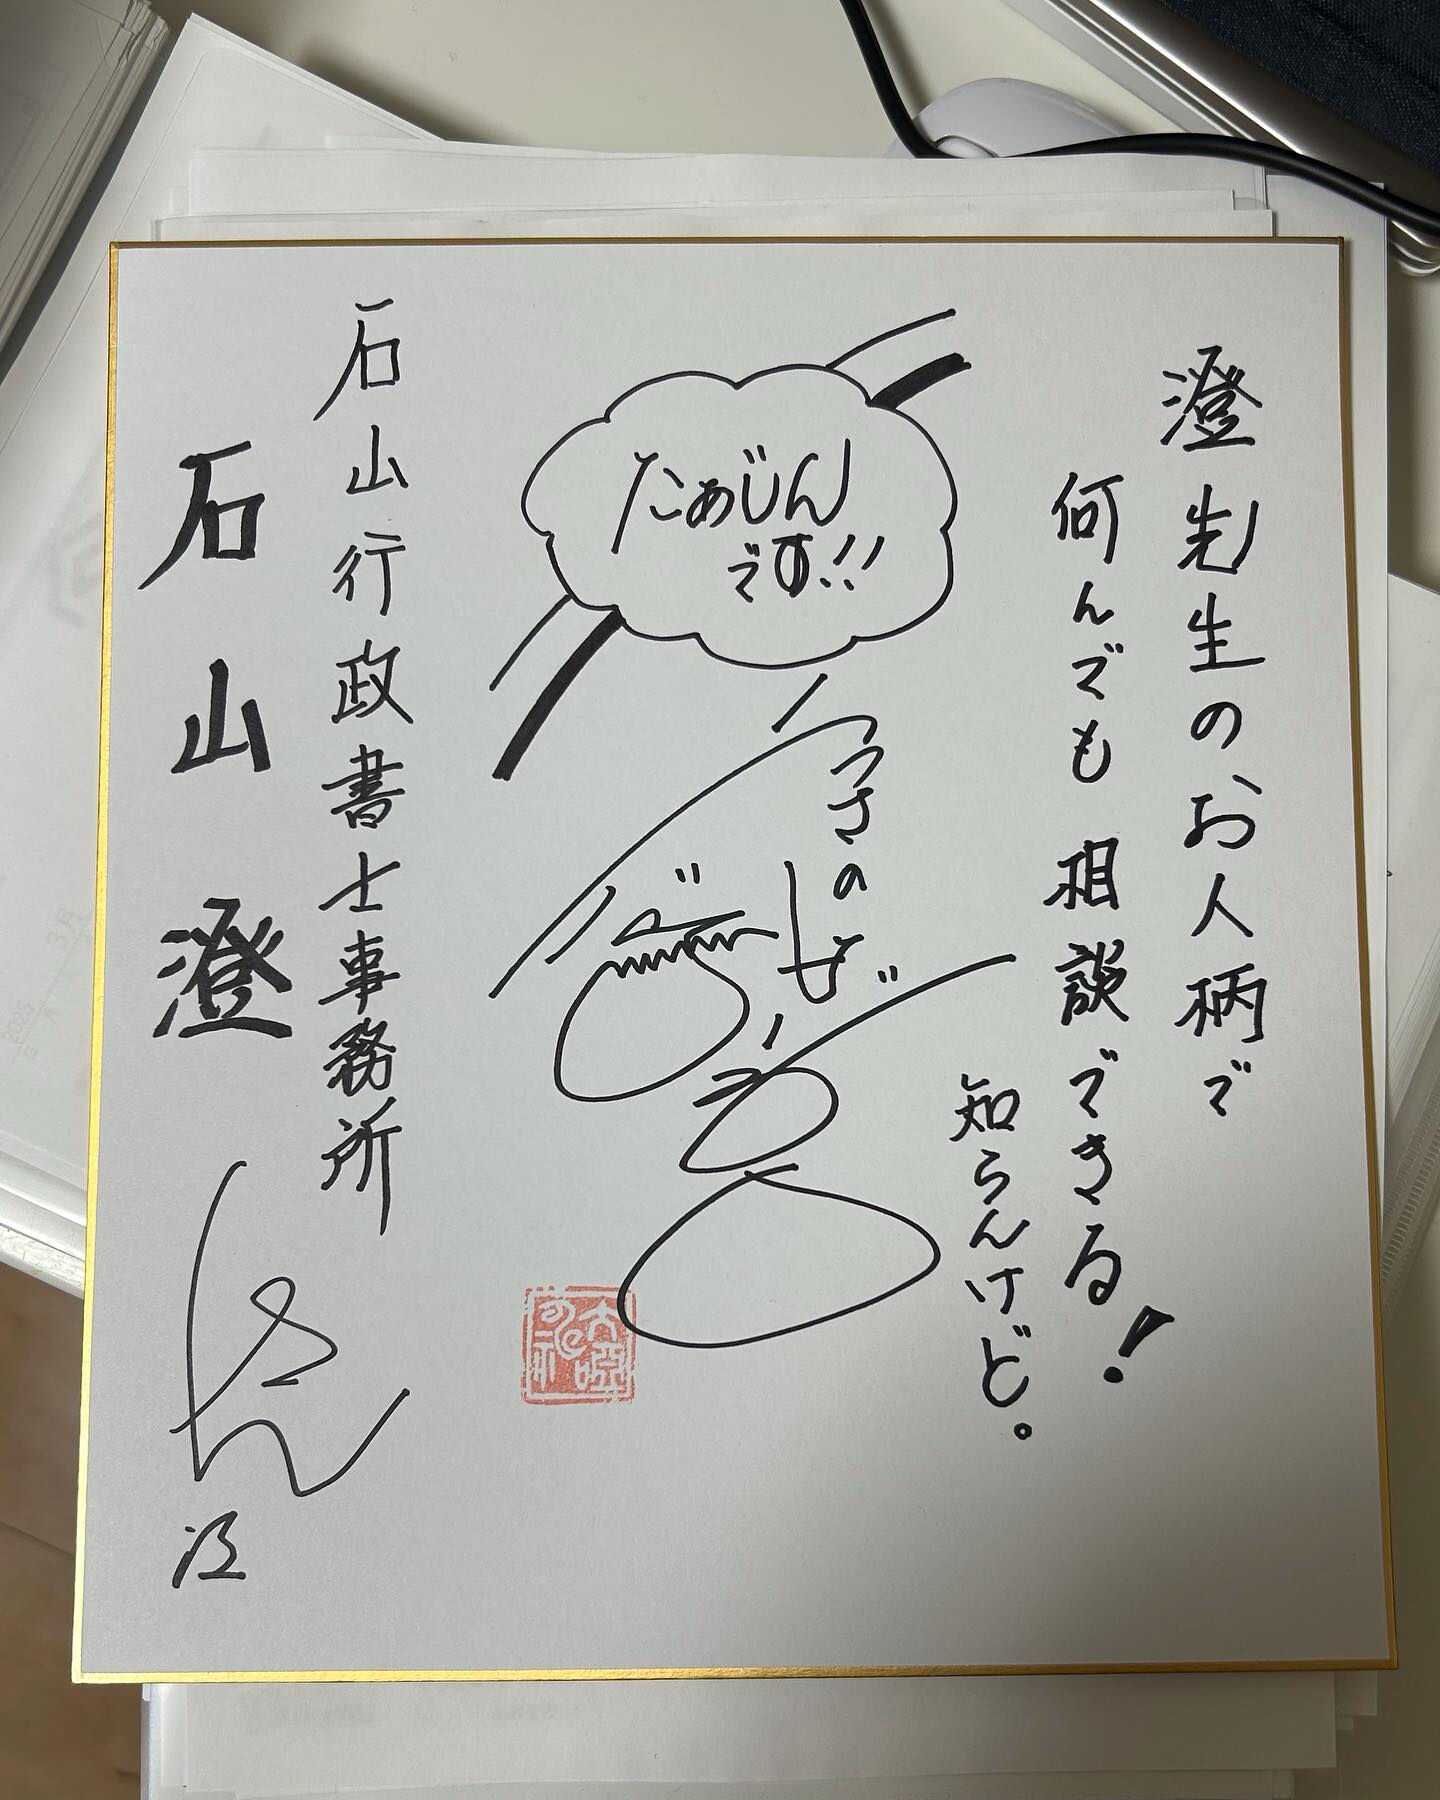 澄先生のお人柄で
何んでも相談できる！
知らんけど。
たぁじん
です!!
石山行政書士事務所
石山澄
さん江